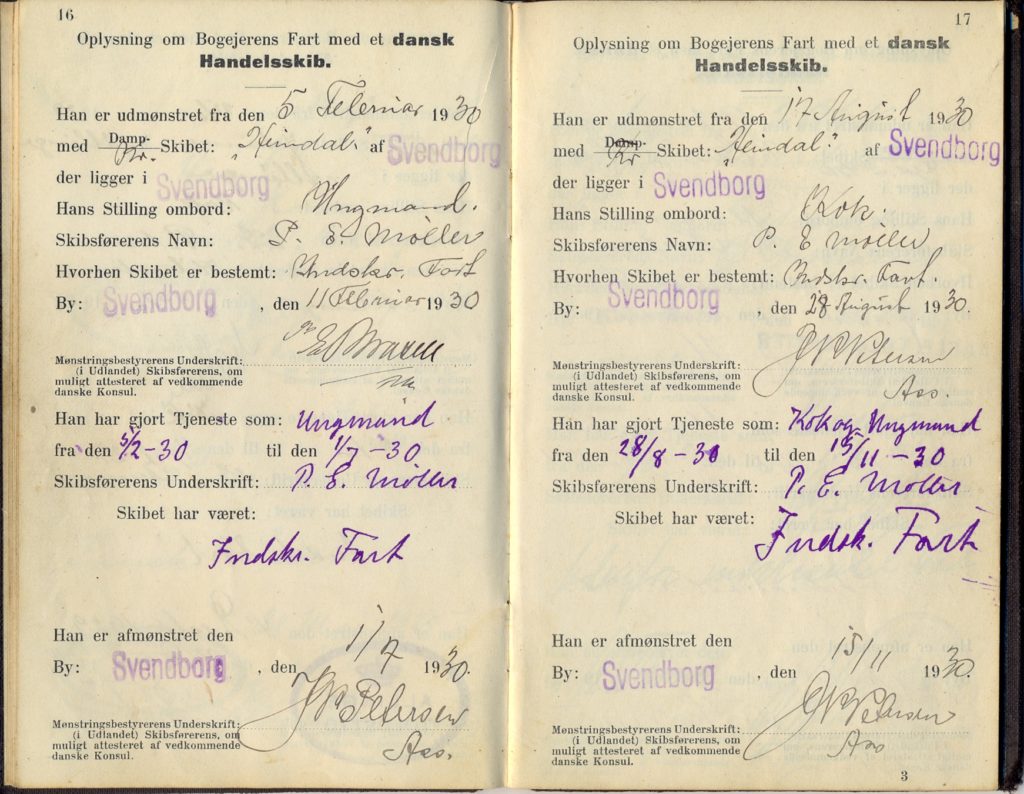 16
Oplysning om Bogejerens Fart med et dansk
Handelsskib.
Han er udmønstret fra den 5 Februar 1930
med Damp- Skibet: „Heimdal" af Svendborg
der ligger i Svendborg
Hans Stilling ombord: Ungmand.
Skibsførerens Navn: P. E. Møller
Hvorhen Skibet er bestemt: Indskr. Fart
By: Svendborg, den 11 Februar 1930
Mønstringsbestyrerens Underskrift:
(i Udlandet) Skibsførerens, om
muligt attesteret af vedkommende
danske Konsul.
Han har gjort Tjeneste som: Ungmand
fra den 5/2-30 til den 1/7-30
Skibsførerens Underskrift: P. E. Møller
Skibet har været:
Indskr. Fart
Han er afmønstret den
By: Svendborg, den 1/7 1930.
Mønstringsbestyrerens Underskrift:
(i Udlandet) Skibsførerens, om
muligt attesteret af vedkommende
danske Konsul.
Petersen
Ass.
17
Oplysning om Bogejerens Fart med et dansk
Handelsskib.
Han er udmønstret fra den 17 August 1930
med Damp- Skibet: „Heimdal" af Svendborg
der ligger i Svendborg
Hans Stilling ombord: Kok.
Skibsførerens Navn: P. E Møller
Hvorhen Skibet er bestemt: Indskr. Fart.
By: Svendborg, den 28 August 1930.
Mønstringsbestyrerens Underskrift:
(i Udlandet) Skibsførerens, om
muligt attesteret af vedkommende
danske Konsul.
Petersen
Ass.
Han har gjort Tjeneste som: Kok og Ungmand
fra den 28/8-30 til den 15/11-30
Skibsførerens Underskrift: P. E. Møller
Skibet har været:
Indsk. Fart
Han er afmønstret den
By: Svendborg, den 15/11 1930.
Mønstringsbestyrerens Underskrift:
(i Udlandet) Skibsførerens, om
muligt attesteret af vedkommende
danske Konsul.
Petersen
Ass
3